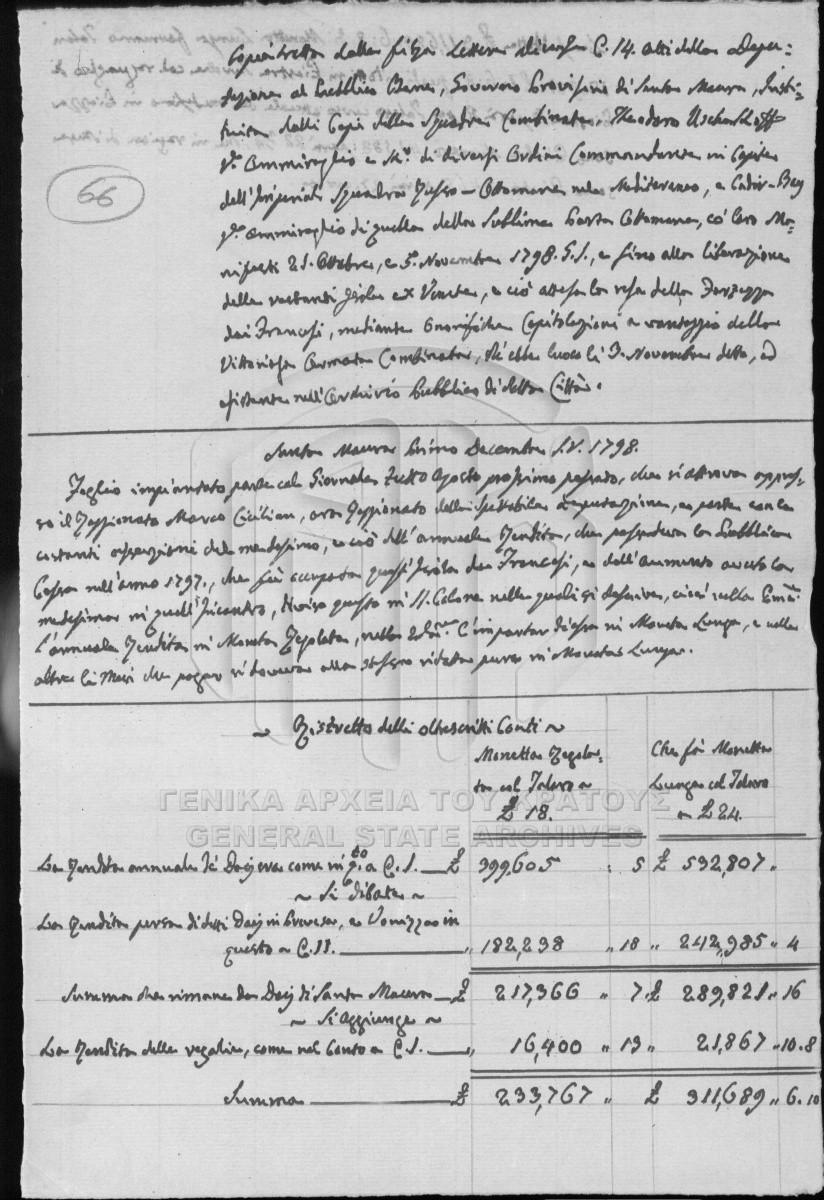 Copia tratta dalla filza Lettere diverse C. 14. Atti della Depu-
tazione al Pubblico Bene, Governo Provisorio di Santa Maura, Insti-
tuita dalli Capi della Squadra Combinata, Theodoro Uschakoff
V.e Ammiraglio e K.r di diversi Ordini Commandante in Capite
dell'Imperial Squadra Russo-Ottomana nel Mediteraneo, e Cadir-Bey
V.e Ammiraglio di quella della Sublime Porta Ottomana, co' loro Ma-
nifesti 21. Ottobre, e 5. Novembre 1798. S.S., e fino alla liberazione
delle restanti Isole ex Venete, e ciò attesa la resa della Fortezza
dai Francesi, mediante Onorifiche Capitolazioni a vantaggio della
Vittoriosa Armata Combinata, ch'ebbe luoco li 3. Novembre detto, ed
esistente nell'Archivio Pubblico di detta Città.
66
Santa Maura Primo Decembre S.V. 1798.
Foglio impiantato parte col Giornale Tutto Agosto prossimo passato, che si attrova appres-
so il Raggionato Marco Cicilian, ora Raggionato della Spettabile Deputazione, e parte con le
costanti asserzioni del medesimo, e ciò dell'annuale Rendita, che possedeva la Pubblica
Cassa nell'anno 1797., che fù occupata quest'Isola dai Francesi, e dell'Aumento avuto la
medesima in quell'Incontro, diviso questo in II. Colone nelle quali si descrive, cioè nella Prima
l'annuale Rendita in Moneta Regolata, nella 2da. l'importar di essa in Moneta Lunga, e nelle
altre li Mesi che pagar si doveva allo stesso ridotta pure in Moneta Lunga.
~ Ristretto delli oltrescritti Conti ~
Monetta Regola-
ta col Talero a
£ 18.
Che fà Monetta
Lunga col Talero
a £ 24.
ΓΕΝΙΚΑ ΑΡΧΕΙΑ ΤΟΥ ΚΡΑΤΟΥΣ
GENERAL STATE ARCHIVES
La Rendita annuale de' Dacj era come in q.to a C. I. £ 399,605 : 5 £ 532,807 "
~ Si dibate ~
La Rendita persa di detti Dacj in Prevesa, e Vonizza in
questo a C. II. " 182,238 " 18 " 242,985 " 4
Summa che rimane da Dacj di Santa Maura £ 217,366 " 7 " £ 289,821 " 16
~ Si aggiunge ~
La Rendita delle regalie, come nel Conto a C. I. " 16,400 " 13 " 21,867 " 10.8
Summa £ 233,767 " £ 311,689 " 6.10